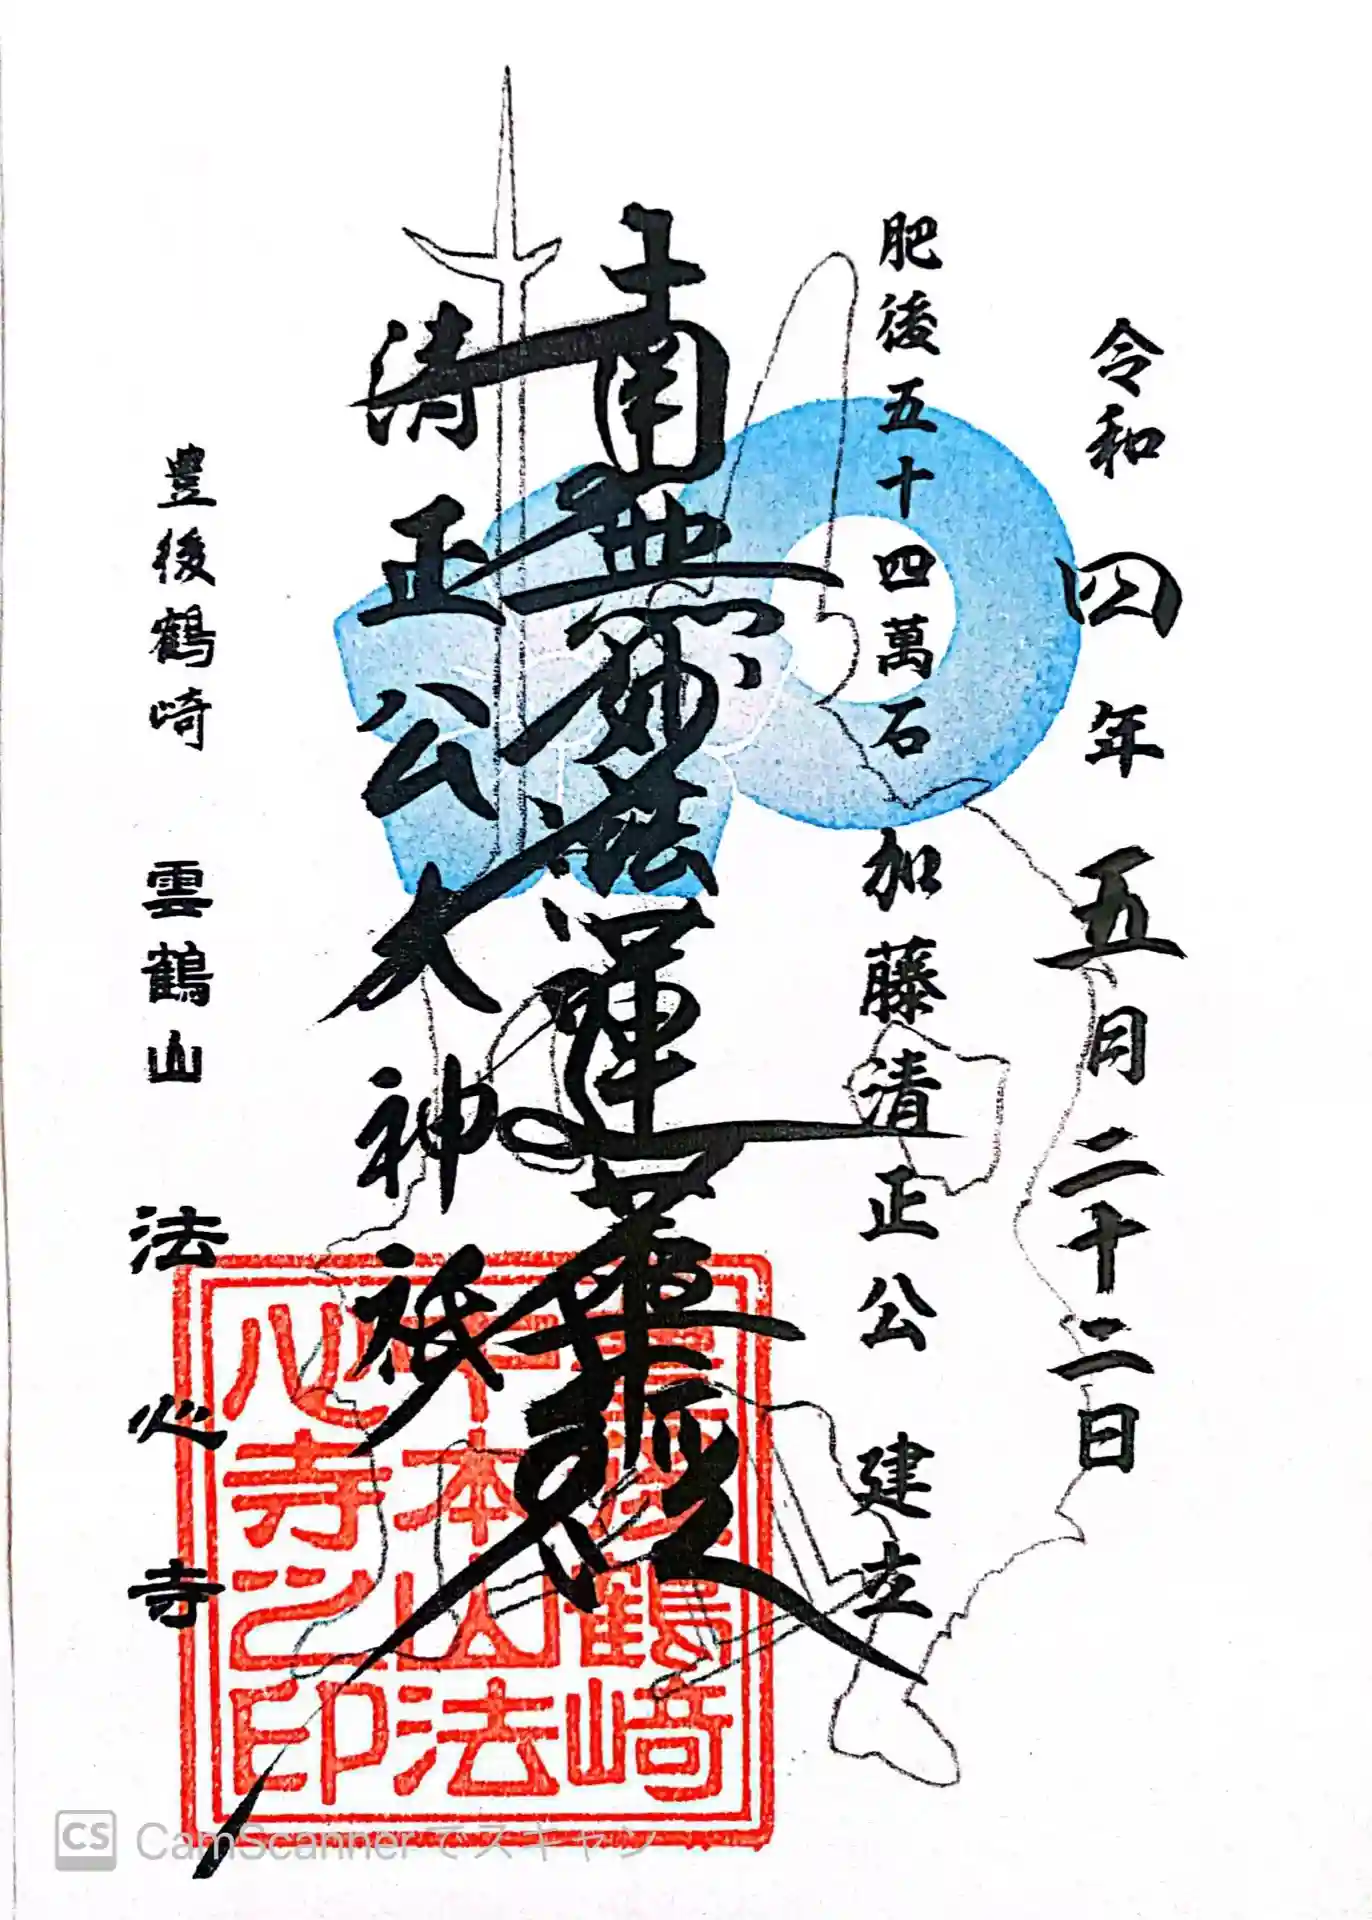 令和四年五月二十二日
肥後五十四萬石 加藤清正公 建立
南無妙法蓮華経
清正公大神祇
豊後鶴崎 雲鶴山 法心寺
豊後鶴崎
本山法
心寺之印
CS CamScannerでスキャン